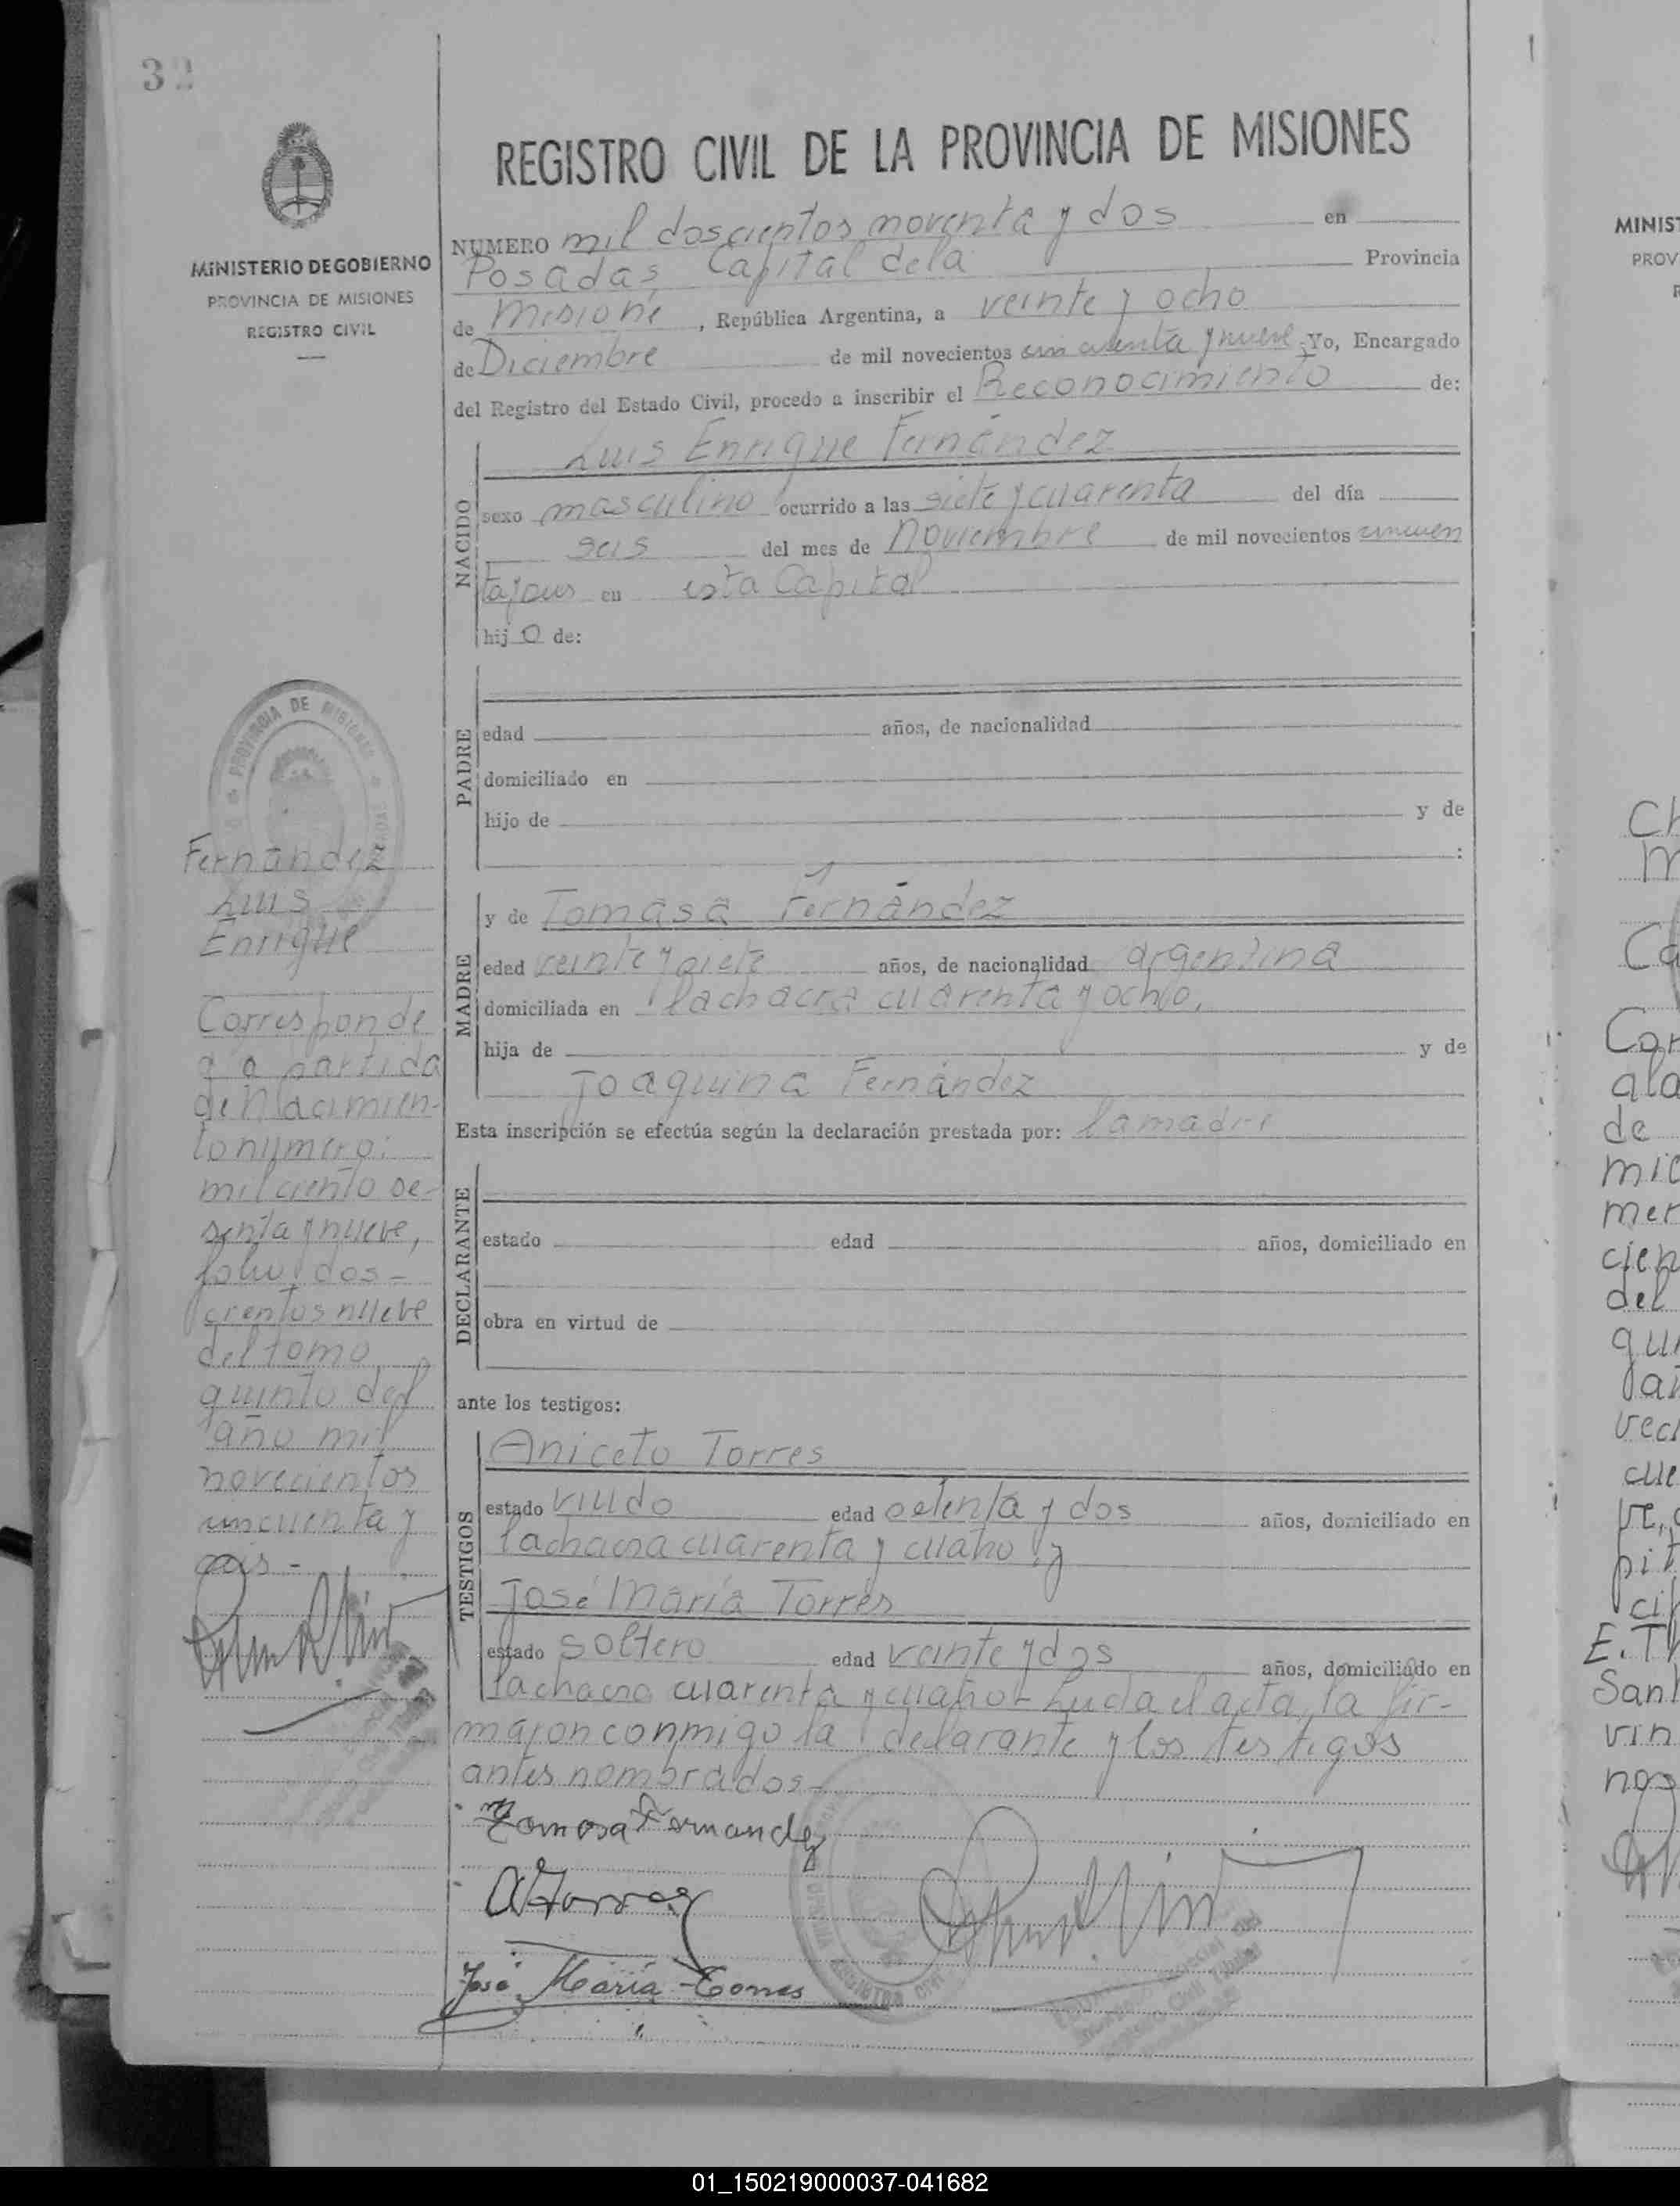 32
REGISTRO CIVIL DE LA PROVINCIA DE MISIONES
MINISTERIO DE GOBIERNO
PROVINCIA DE MISIONES
REGISTRO CIVIL
NUMERO mil doscientos noventa y dos en
Posadas, Capital dela Provincia
de Misione , República Argentina, a veinte y ocho
de Diciembre de mil novecientos cincuenta y nueve Yo, Encargado
del Registro del Estado Civil, procedo a inscribir el Reconocimiento de:
NACIDO
Luis Enrique Fernández
sexo masculino ocurrido a las siete y cuarenta del día
seis del mes de Noviembre de mil novecientos cincuen
tayseis en esta Capital
hijo de:
PADRE
edad años, de nacionalidad
domiciliado en
hijo de y de
:
MADRE
y de Tomasa Fernández
edad veinte y siete años, de nacionalidad argentina
domiciliada en la chacra cuarenta y ocho,
hija de y de
Joaquina Fernández
Esta inscripción se efectúa según la declaración prestada por: la madre
DECLARANTE
estado edad años, domiciliado en
obra en virtud de
ante los testigos:
TESTIGOS
Aniceto Torres
estado viudo edad setenta y dos años, domiciliado en
la chacra cuarenta y cuatro y
José María Torres
estado soltero edad veinte y dos años, domiciliado en
la chacra cuarenta y cuatro- Leida el acta, la fir-
maron conmigo la declarante y los testigos
antes nombrados-
Tomasa Fernandez
A Torres
José María Torres
PROVINCIA DE MISIONES
Fernández
Luis
Enrique
Corresponde
a la partida
de Nacimien-
to numero:
mil ciento se-
senta y nueve,
folio dos-
cientos nueve
del tomo
quinto del
año mil
novecientos
cincuenta y
seis-
REGISTRO CIVIL
MINIST
PROV
R
Ch
M
Ca
Cor
ala
de
mic
mer
cien
del
qui
vec
cue
ve,
pit
E. Th
San
vin
nos
01_150219000037-041682